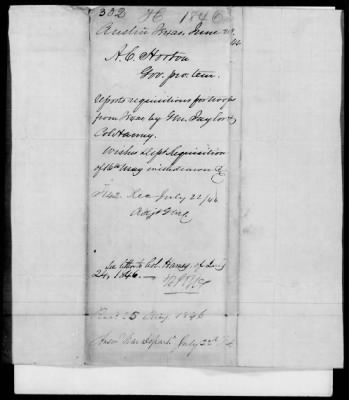 302 H 1846
Austin Texas, June 20, 46
A. C. Horton
Gov. pro. tem.
reports requisitions for troops
from Texas by Gen. Taylor &
Col Harney.
Wishes Dept Requisition
of 16th May withdrawn &c
H 42. Rec July 22/46
Adjt Genl
See letter to Col. Harney, of
24, 1846.
25 Aug 1846
War Depart. July 22d